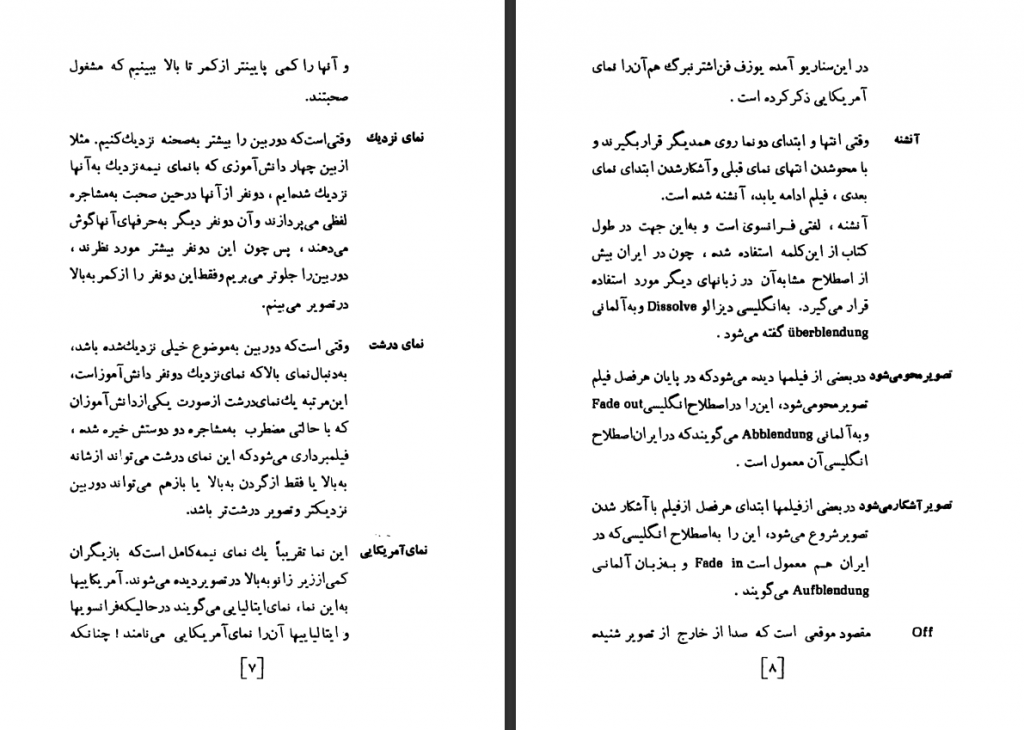 و آنها را کمی پایینتر ازکمر تا بالا ببینیم که مشغول
صحبتند.
نمای نزدیك وقتی‌است‌که دوربین را بیشتر به‌صحنه نزدیك‌کنیم. مثلا
ازبین چهار دانش‌آموزی که بانمای نیمه‌نزدیك به‌آنها
نزدیك شده‌ایم ، دونفر ازآنها درحین صحبت به‌مشاجره
لفظی می‌پردازند وآن دونفر دیگر به‌حرفهای‌آنهاگوش
می‌دهند ، پس چون این دونفر بیشتر مورد نظرند ،
دوربین‌را جلوتر می‌بریم وفقط‌این دونفر را ازکمر به‌بالا
درتصویر می‌بینم.
نمای درشت وقتی است‌که دوربین به‌موضوع خیلی نزدیك‌شده باشد،
به‌دنبال‌نمای بالاکه نمای‌نزدیك دونفر دانش‌آموزاست،
این‌مرتبه یك‌نمای‌درشت ازصورت یکی‌ازدانش‌آموزان
که با حالتی مضطرب به‌مشاجره دو دوستش خیره شده ،
فیلمبرداری می‌شودکه این نمای درشت می‌تواند ازشانه
به‌بالا یا فقط ازگردن به‌بالا یا بازهم می‌تواند دوربین
نزدیکتر وتصویر درشت‌تر باشد.
نمای‌آمریکایی این نما تقریباً یك نمای نیمه‌کامل است‌که بازیگران
کمی‌اززیر زانوبه‌بالا درتصویردیده می‌شوند. آمریکاییها
به‌این نما، نمای‌ایتالیایی می‌گویند درحالیکه‌فرانسویها
و ایتالیاییها آن‌را نمای‌آمریکایی می‌نامند ! چنانکه
[۷]
در این‌سناریو آمده یوزف فن‌اشترنبرگ هم‌آن‌را نمای
آمریکایی ذکرکرده است .
آنشنه وقتی انتها و ابتدای دونما روی همدیگر قراربگیرند و
با محوشدن انتهای نمای قبلی وآشکارشدن ابتدای نمای
بعدی ، فیلم ادامه یابد، آنشنه شده است.
آنشنه ، لغتی فرانسوی است و به‌این جهت در طول
کتاب از این‌کلمه استفاده شده ، چون در ایران بیش
از اصطلاح مشابه‌آن در زبانهای دیگر مورد استفاده
قرار می‌گیرد. به‌انگلیسی دیزالو Dissolve وبه‌آلمانی
überblendung گفته می‌شود .
تصویرمحومی‌شود دربعضی از فیلمها دیده می‌شودکه در پایان هرفصل فیلم
تصویرمحومی‌شود، این‌را دراصطلاح‌انگلیسی Fade out
وبه‌آلمانی Abblendung می‌گویندکه درایران‌اصطلاح
انگلیسی‌آن معمول است .
تصویرآشکارمی‌شود دربعضی ازفیلمها ابتدای هرفصل ازفیلم با آشکار شدن
تصویرشروع می‌شود، این را به‌اصطلاح انگلیسی‌که در
ایران هم معمول است Fade in و به‌زبان آلمانی
Aufblendung می‌گویند .
Off مقصود موقعی است که صدا از خارج از تصویر شنیده
[۸]